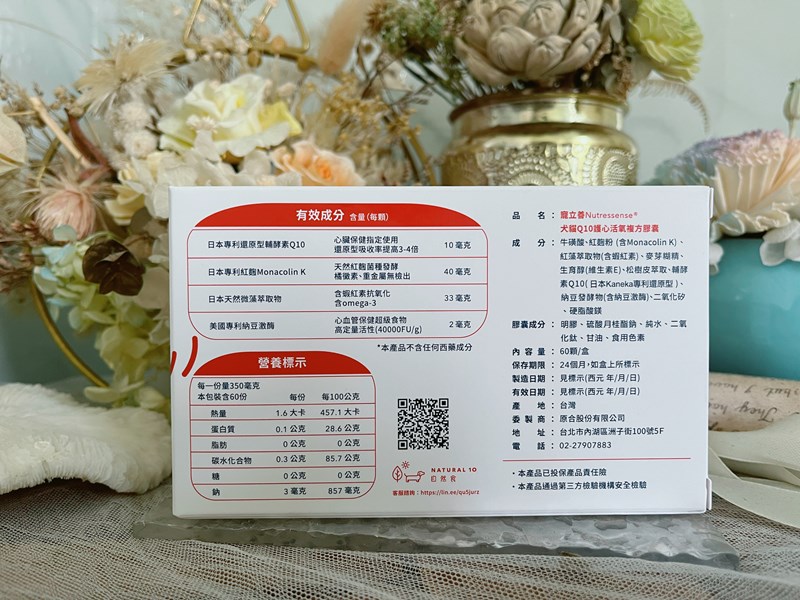 有效成分 含量(每顆)
日本專利還原型輔酵素Q10 心臟保健指定使用 還原型吸收率提高3-4倍 10 毫克
日本專利紅麴Monacolin K 天然紅麴菌種發酵 橘黴素、重金屬無檢出 40 毫克
日本天然微藻萃取物 含蝦紅素抗氧化 含omega-3 33 毫克
美國專利納豆激酶 心血管保健超級食物 高定量活性(40000FU/g) 2 毫克
*本產品不含任何西藥成分
營養標示
每一份量350毫克
本包裝含60份
每份 每100公克
熱量 1.6 大卡 457.1 大卡
蛋白質 0.1 公克 28.6 公克
脂肪 0 公克 0 公克
碳水化合物 0.3 公克 85.7 公克
糖 0 公克 0 公克
鈉 3 毫克 857 毫克
NATURAL10
自然食
客服諮詢：https://lin.ee/quSjurz
品名：寵立善Nutressense®
犬貓Q10護心活氧複方膠囊
成分：牛磺酸、紅麴粉 (含Monacolin K)、
紅藻萃取物(含蝦紅素)、麥芽糊精、
生育醇(維生素E)、松樹皮萃取、輔酵
素Q10( 日本Kaneka專利還原型 )、
納豆發酵物(含納豆激酶)、二氧化矽
、硬脂酸鎂
膠囊成分：明膠、硫酸月桂酯鈉、純水、二氧
化鈦、甘油、食用色素
內容量：60顆/盒
保存期限：24個月，如盒上所標示
製造日期：見標示(西元 年/月/日)
有效日期：見標示(西元 年/月/日)
產地：台灣
委製商：原合股份有限公司
地址：台北市內湖區洲子街100號5F
電話：02-27907883
・本產品已投保產品責任險
・本產品通過第三方檢驗機構安全檢驗